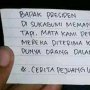 BAPAK PRESIDEN
DI SUKABUMI MEMAP
TAPI, MATA KAMI DE
MEREKA DITERIMA K
DUNIA ORANG DALAM
#. CERITA PEJUANG U